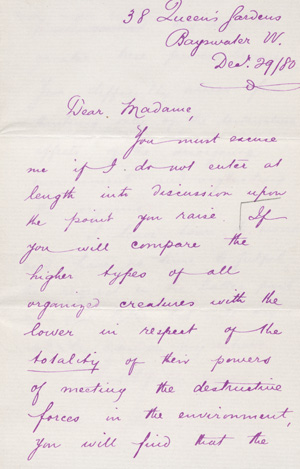 38 Queen's Gardens
Bayswater W.
Decr. 29/80
Dear Madame,
You must excuse
me if I do not enter at
length into discussion upon
the point you raise. If
you will compare the
higher types of all
organized creatures with the
lower in respect of the
totality of their powers
of meeting the destructive
forces in the environment,
you will find that the